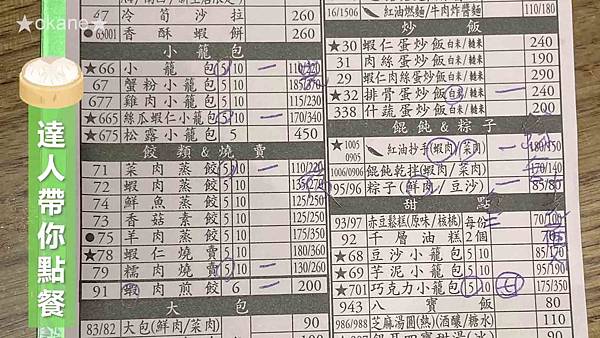 ★ckane☆
達人帶你點餐
67 冷筍沙拉 260
●63001 香酥蝦餅 260
小籠包
★66 小籠包 5/10 一
67 蟹粉小籠包 5/10 185/370
677 雞肉小籠包 5/10 115/230
★665 絲瓜蝦仁小籠包 5/10 一 170/340
★675 松露小籠包 6 450
餃類&燒賣
71 菜肉蒸餃 5/10 一 110/220
72 蝦肉蒸餃 5/10 135/270
74 鮮魚蒸餃 5/10
73 香菇素餃 5/10
●75 羊肉蒸餃 5/10 175/350
★78 蝦仁燒賣 5/10 180/360
79 糯肉燒賣 5/10 一 130/260
91 蝦肉煎餃 6 一 200
大包
83/82 大包(鮮肉/菜肉) 90
16/1506 紅油燃麵/牛肉炸醬麵 110/180
炒飯
★30 蝦仁蛋炒飯 白米/糙米 240
31 肉絲蛋炒飯 白米/糙米 190
29 蝦仁肉絲蛋炒飯 白米/糙米 290
★32 排骨蛋炒飯 白米/糙米 一 240
338 什蔬蛋炒飯 白米/糙米 200
餛飩&粽子
★1005 0905 紅油抄手(蝦肉/菜肉) 180/150
1006/0906 餛飩乾拌(蝦肉/菜肉) 170/140
95/96 粽子(鮮肉/豆沙) 一 85/80
甜點
93/97 赤豆鬆糕(原味/核桃) 每份 70/100
92 千層油糕 2個
★68 豆沙小籠包 5/10 85/170
★69 芋泥小籠包 5/10 95/190
★701 巧克力小籠包 5/10 一 175/350
943 八寶飯 80
986/988 芝麻湯圓(熱)(酒釀/糖水) 110